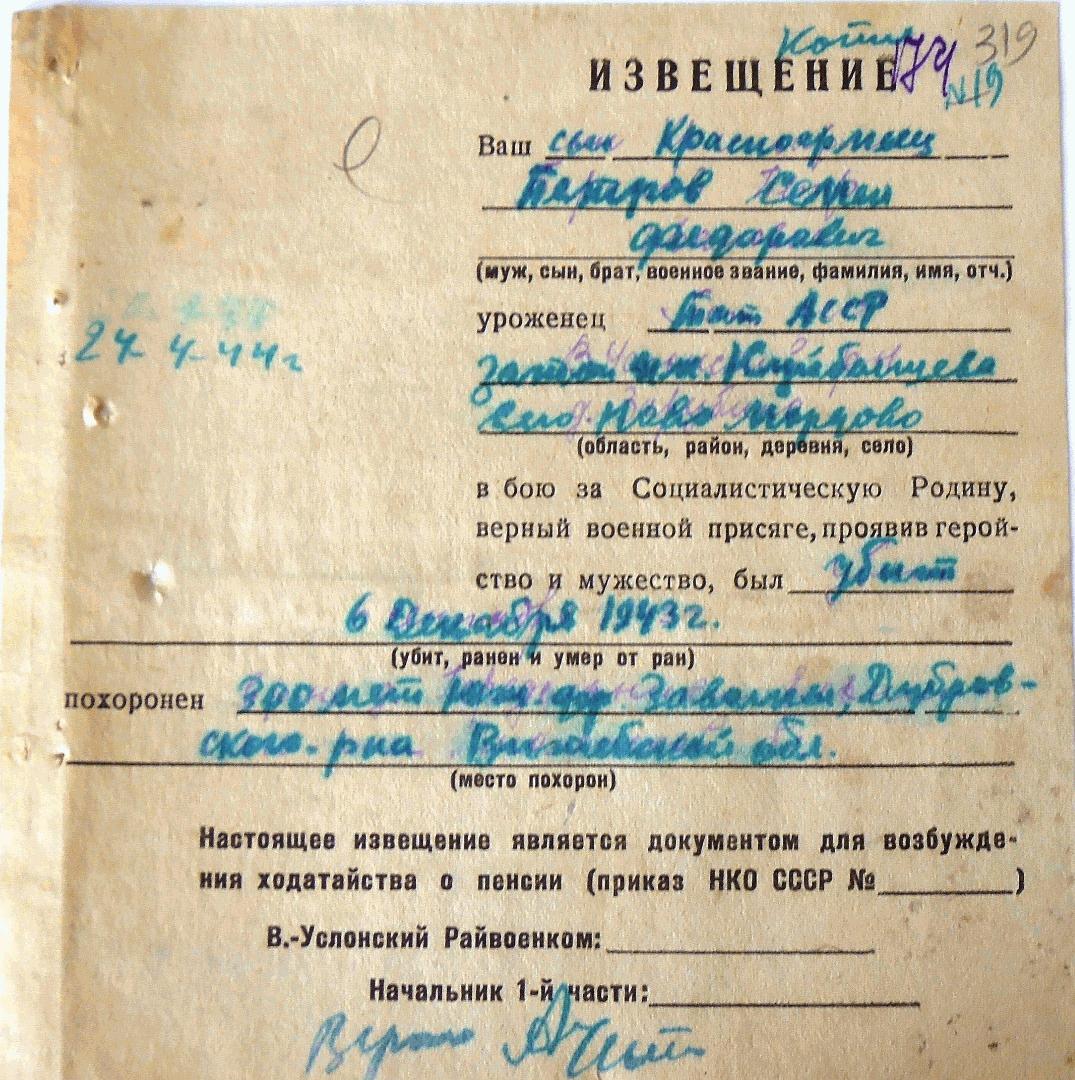 Копия 174 319
ИЗВЕЩЕНИЕ №19
Ваш сын Красноармеец
Петров Семен
Федорович
(муж, сын, брат, военное звание, фамилия, имя, отч.)
уроженец Тат АССР
24 4 44г
им. Куйбышева
село Ново Мордово
(область, район, деревня, село)
в бою за Социалистическую Родину,
верный военной присяге, проявив герой-
ство и мужество, был убит
6 Декабря 1943г.
(убит, ранен и умер от ран)
похоронен 300 мет Юж. дер. Дубров-
ского р-на Витебской обл.
(место похорон)
Настоящее извещение является документом для возбужде-
ния ходатайства о пенсии (приказ НКО СССР №________)
В.-Услонский Райвоенком:
Начальник 1-й части:
Верно